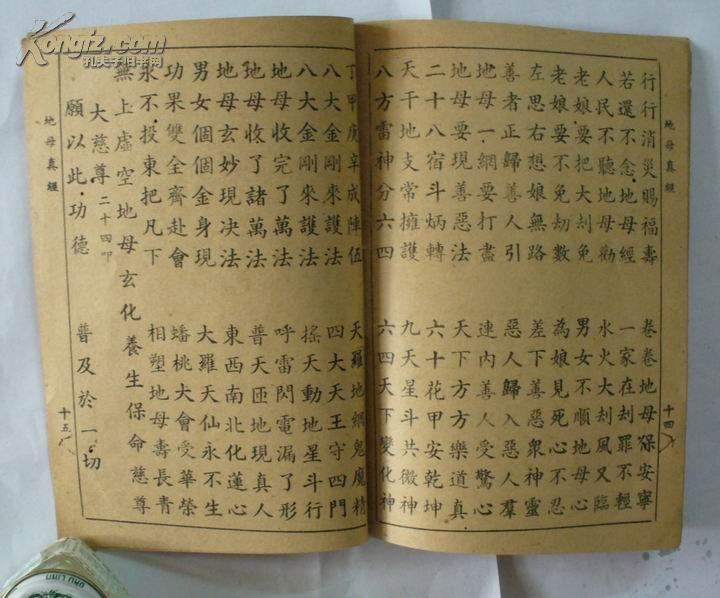 地母真經
十四
行行消災賜福壽 卷卷地母保安寧
若還不念地母經 一家在刦罪不輕
人民不聽地母勸 水火大刦風又臨
老娘要把大刦免 男女不順地母心
老娘要不免刦數 為娘見死心不忍
左思右想娘無路 差下善惡眾神靈
善者正歸善人引 惡人歸入惡人羣
地母一網要打盡 連內善人受驚心
地母要現善惡法 天下方方樂道真
二十八宿斗炳轉 六十花甲安乾坤
天干地支常擁護 九天星斗共微神
八方雷神分六四 六四天下變化神
丁甲庚辛成陣伍 天羅地網鬼魔精
八大金剛來護法 四大天王守四門
八大金剛來護法 搖天動地星斗行
地母收完了萬法 呼雷閃電漏了形
地母收了諸萬法 普天匝地現真人
地母玄妙現決法 東西南北化蓮心
男女個個金身現 大羅天仙永不生
功果雙全齊赴會 蟠桃大會受華榮
永不投東把凡下 相塑地母壽長青
無上虛空地母玄化養生保命慈尊
大慈尊 二十四叩
願以此功德 普及於一切
地母真經
十五
Kongfz.com
孔夫子旧书网